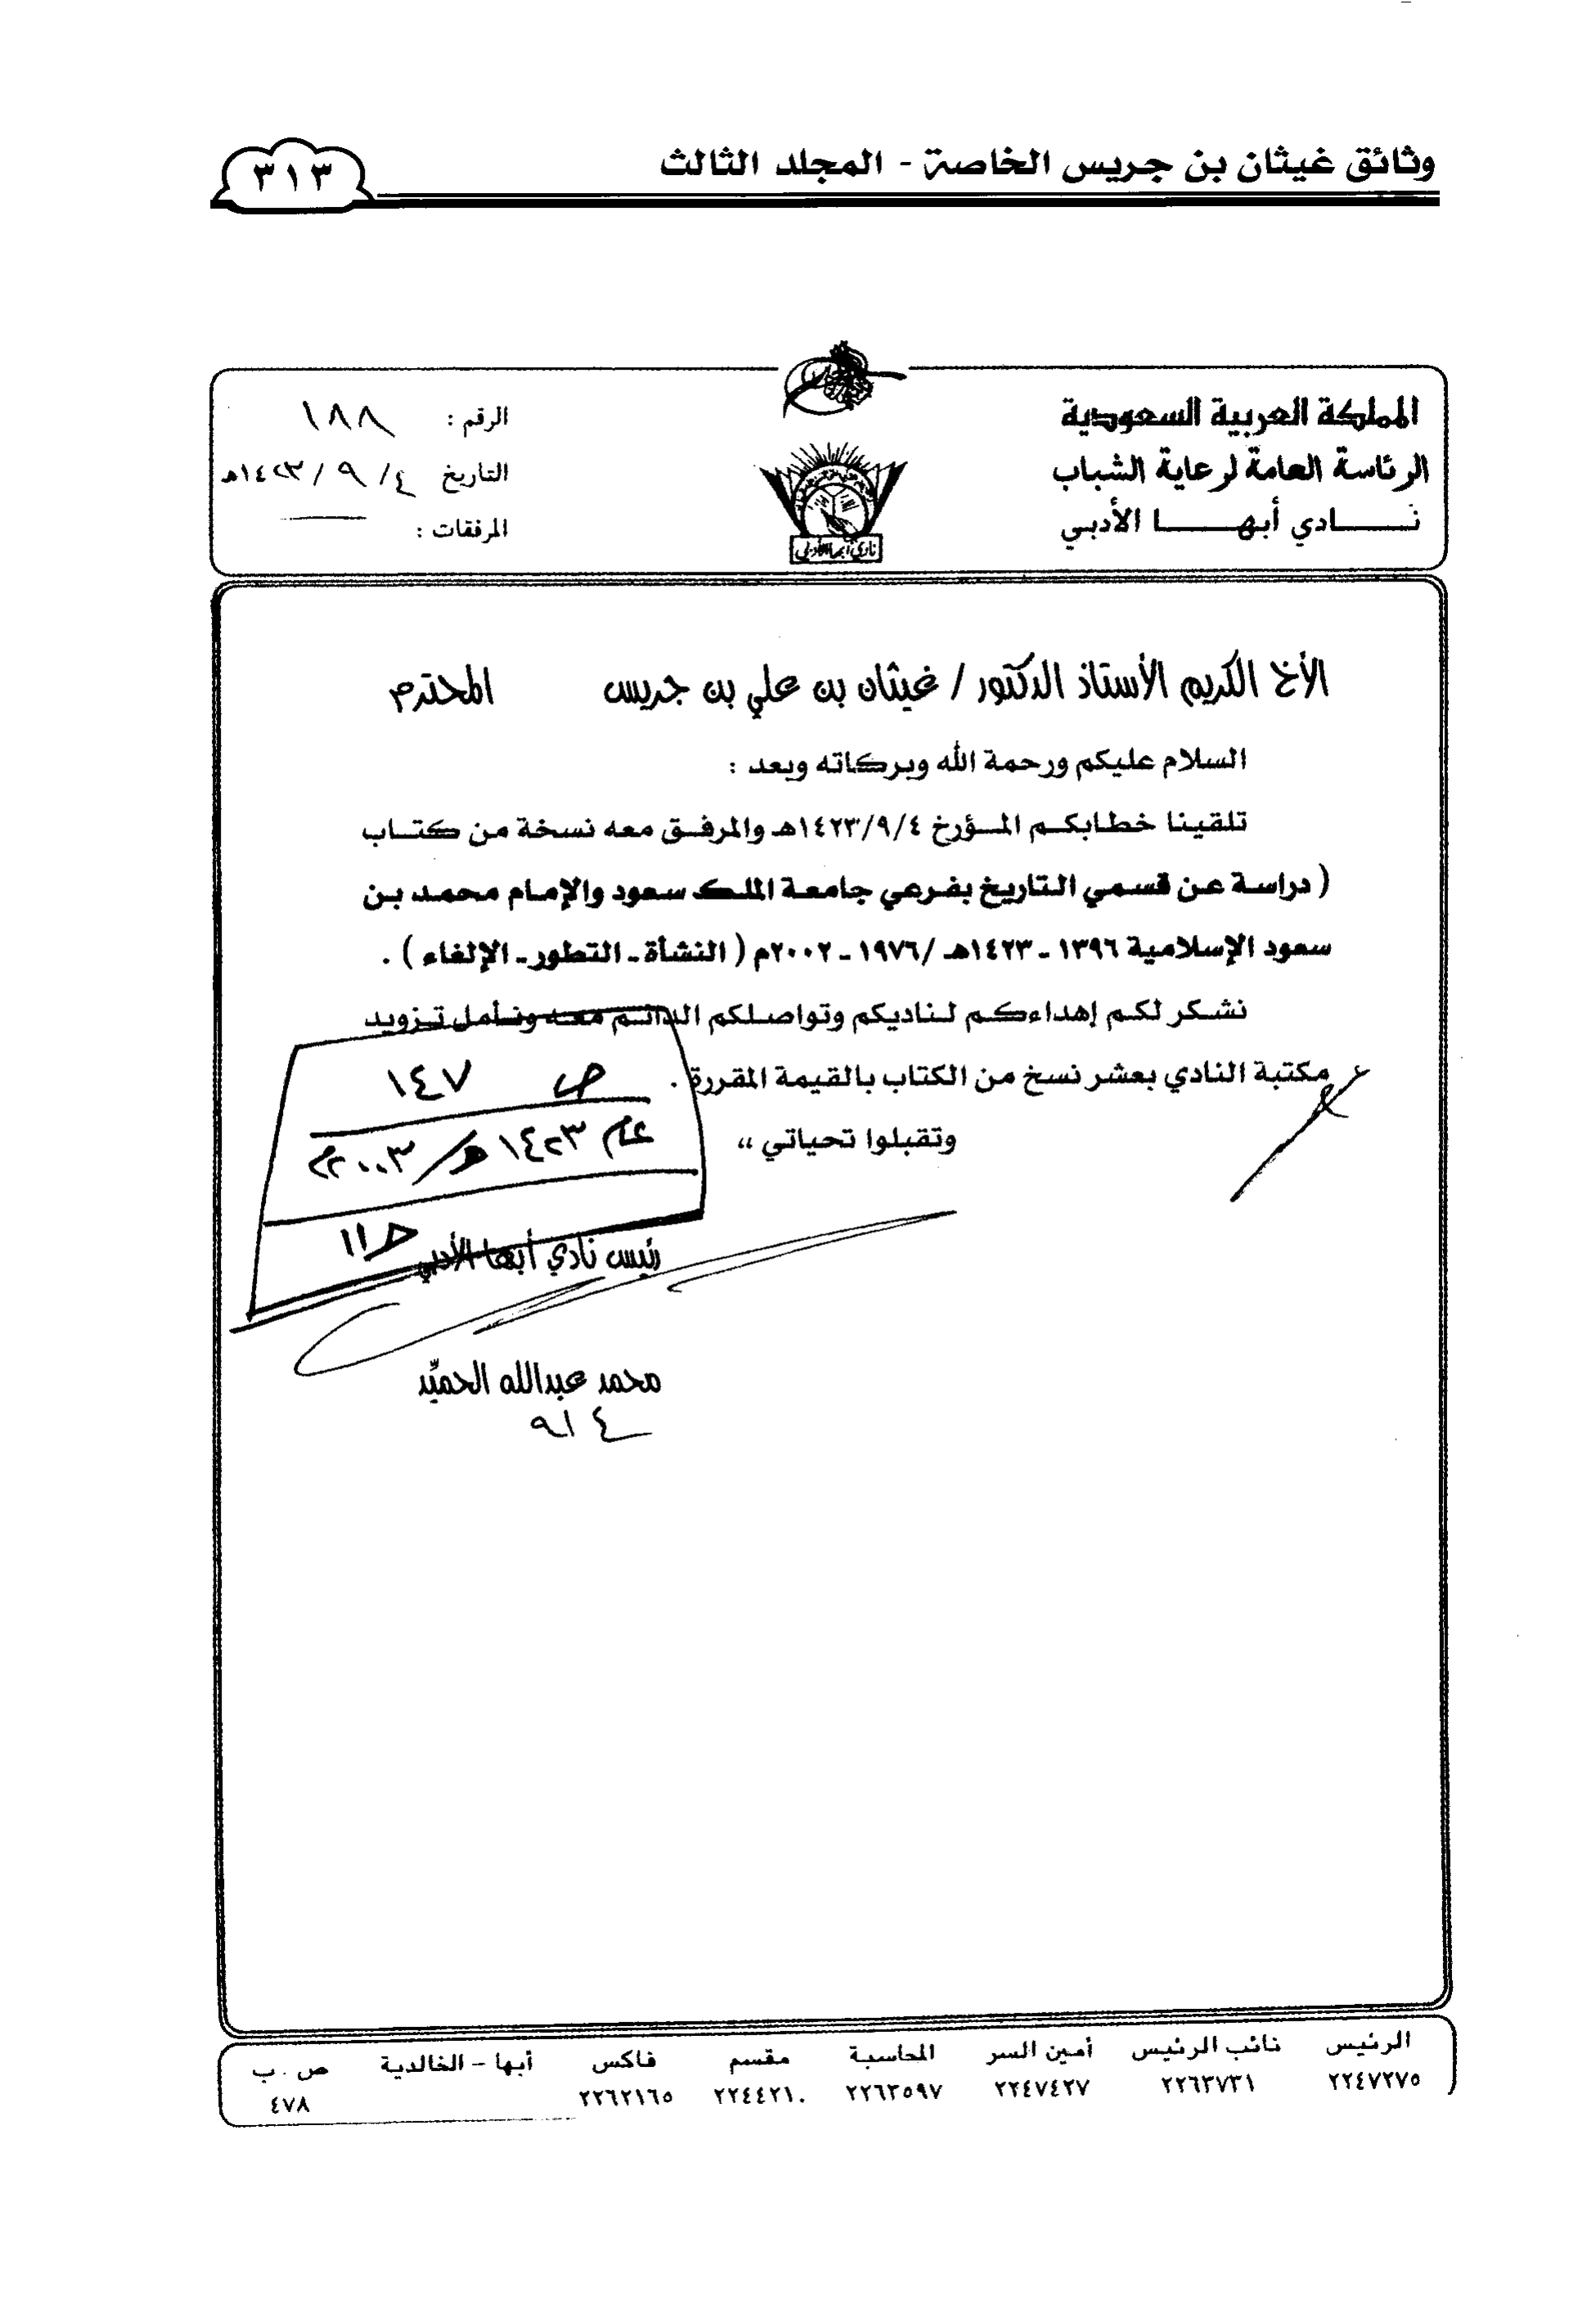 وثائق غيثان بن جريس الخاصة - المجلد الثالث
٣١٣
المملكة العربية السعودية
الرئاسة العامة لرعاية الشباب
نــــادي أبهــــا الأدبي
نادي أبها الأدبي
الرقم : ١٨٨
التاريخ ٤ / ٩ / ١٤٢٣هـ
المرفقات :
الأخ الكريم الأستاذ الدكتور / غيثان بن علي بن جريس المحترم
السلام عليكم ورحمة الله وبركاته وبعد :
تلقينا خطابكم المؤرخ ١٤٢٣/٩/٤هـ والمرفق معه نسخة من كتاب
( دراسة عن قسمي التاريخ بفرعي جامعة الملك سعود والإمام محمد بن
سعود الإسلامية ١٣٩٦ ـ ١٤٢٣هـ /١٩٧٦ ـ ٢٠٠٢م ( النشأة ـ التطور ـ الإلغاء ) .
نشكر لكم إهداءكم لناديكم وتواصلكم الدائم معه ونأمل تزويد
مكتبة النادي بعشر نسخ من الكتاب بالقيمة المقررة .
وتقبلوا تحياتي ،،
ص ١٤٧
عام ١٤٢٣هـ / ٢٠٠٣م
رئيس نادي أبها الأدبي
محمد عبدالله الحميّد
٩/٤
الرئيس نائب الرئيس أمين السر المحاسبة مقسم فاكس أبها - الخالدية ص . ب
٢٢٤٧٢٧٥ ٢٢٦٣٧٣١ ٢٢٤٧٤٢٧ ٢٢٦٣٥٩٧ ٢٢٤٤٢١٠ ٢٢٦٢١٦٥ ٤٧٨